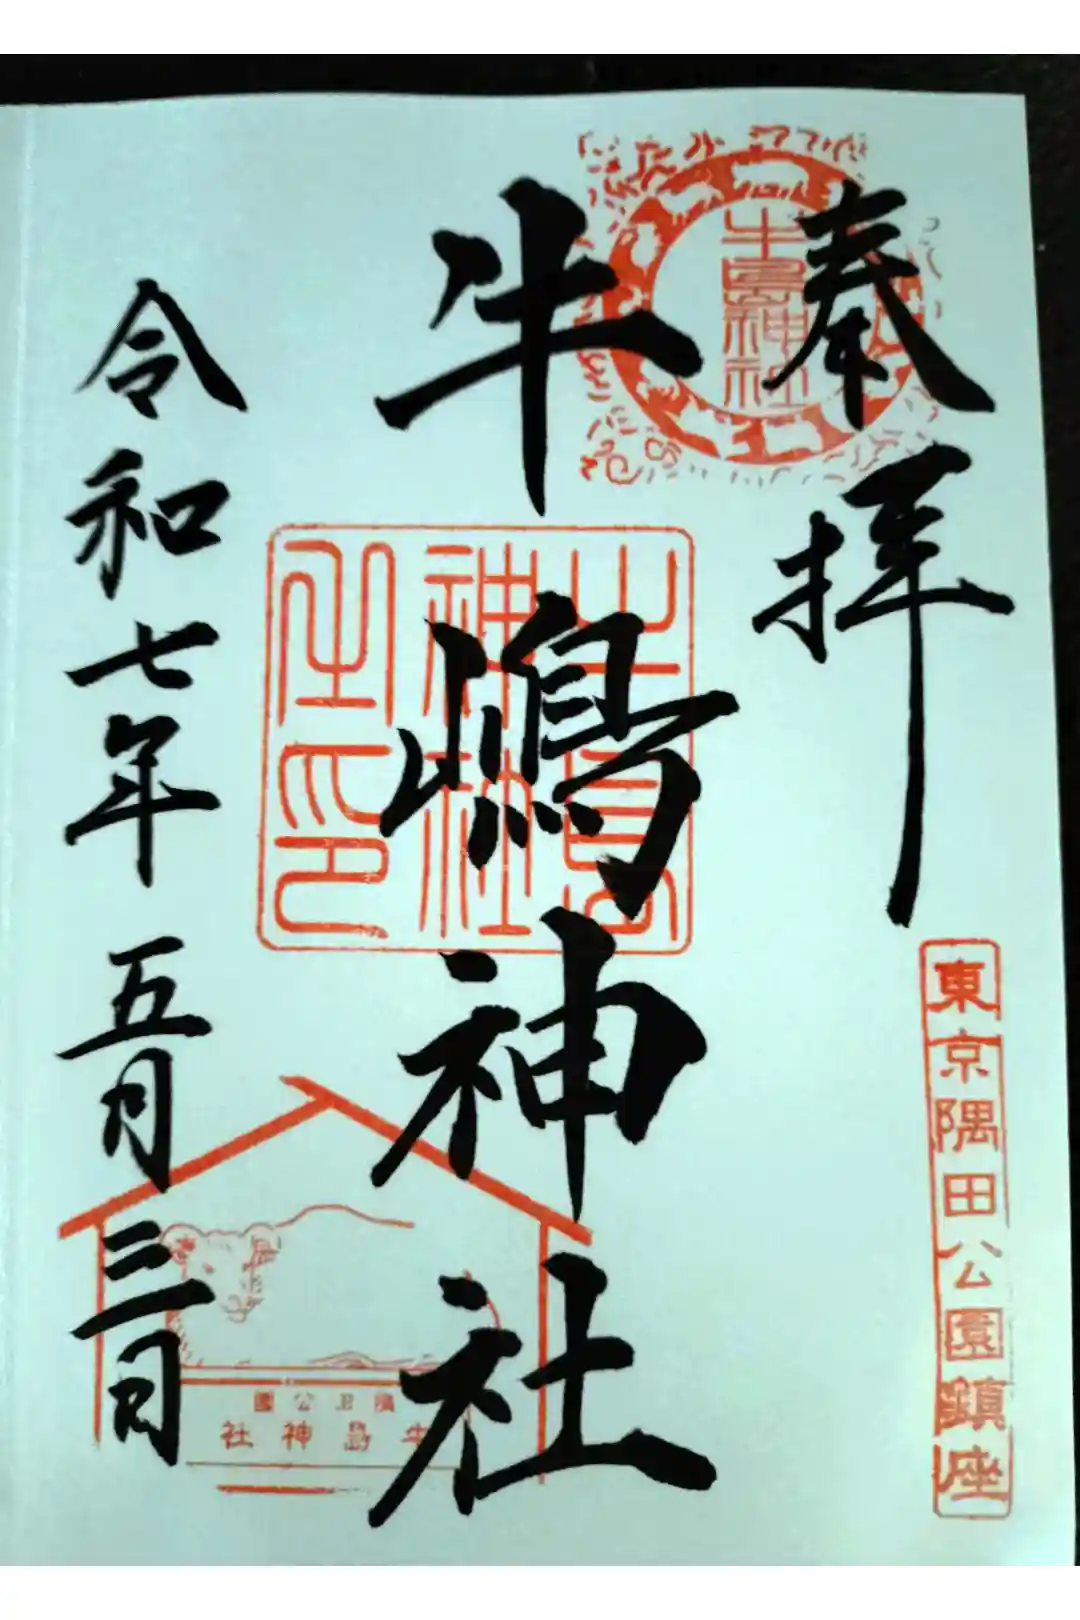 奉拝
牛島神社
東京隅田公園鎮座
牛嶋神社
牛島神社之印
令和七年五月三日
隅田公園
牛島神社